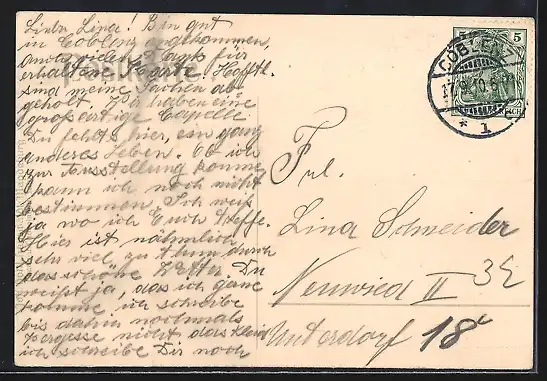 Liebe Lina! Bin gut
in Coblenz angekommen,
auch vielen Dank für
erhaltene Karte. Hofftl.
sind meine Sachen ab-
geholt. Ja haben eine
großartige Capelle
Du fehlst hier, ein ganz
anderes Leben. Ob ich
zur Ausstellung komme,
kann ich noch nicht
bestimmen. Ich weiß
ja wo ich Euch treffe.
Hier ist nähmlich
sehr viel zu thun durch
das schöne Wetter. Du
weißt ja, das ich gäne
komme, ich schreibe
bis dahin nochmals
vergesse nicht das Kleid
ich schreibe Dir noch
Postkarte
5
COBLENZ
* 1
Frl.
Lina Schneider
Neuwied II
32
Unterdorf 18